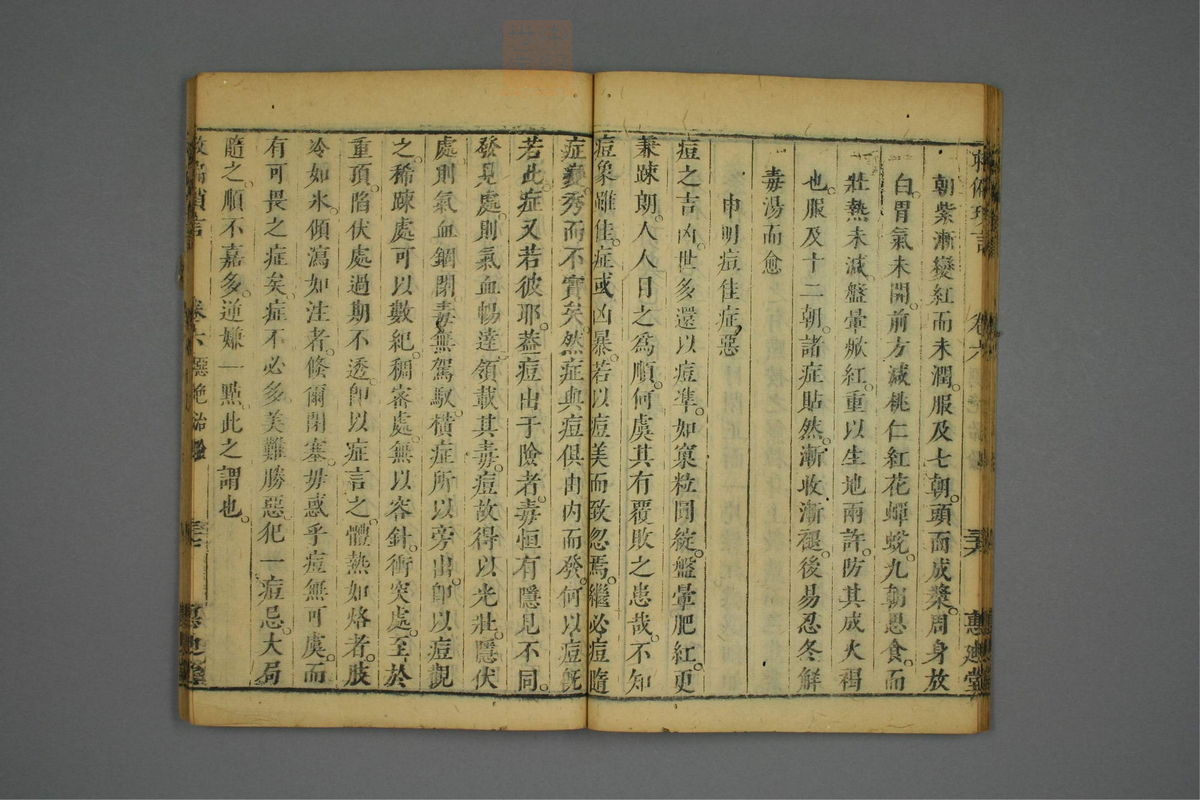 救偏瑣言 卷六 三六 惠迪堂
朝紫漸變紅而未潤服及七朝頭面成漿周身放
白胃氣未開前方減桃仁紅花蟬蛻九朝思食而
壯熱未減盤暈焮紅重以生地兩許防其成火褐
也服及十二朝諸症貼然漸收漸褪後易忍冬解
毒湯而愈
申明痘佳症惡
痘之吉凶世多還以痘凖如窠粒圓綻盤暈肥紅更
兼踈朗人人目之為順何虞其有覆敗之患哉不知
痘象雖佳症或凶暴若以痘美而致忽焉繼必痘隨
症變秀而不實矣然症與痘俱由内而發何以痘旣
若此症又若彼耶葢痘出于險者毒恒有隱見不同
發見處則氣血暢達領載其毒痘故得以光壯隱伏
處則氣血錮閉毒無駕馭橫症所以旁出卽以痘觀
之稀踈處可以數紀稠密處無以容針衝突處至於
重頂陷伏處過期不透卽以症言之體熱如烙者肢
冷如氷傾瀉如注者倐爾閉塞毋惑乎痘無可虞而
有可畏之症矣症不必多美難勝惡犯一痘忌大局
隨之順不嘉多逆嫌一㸃此之謂也
救偏瑣言 卷六 治驗 三七 惠迪堂